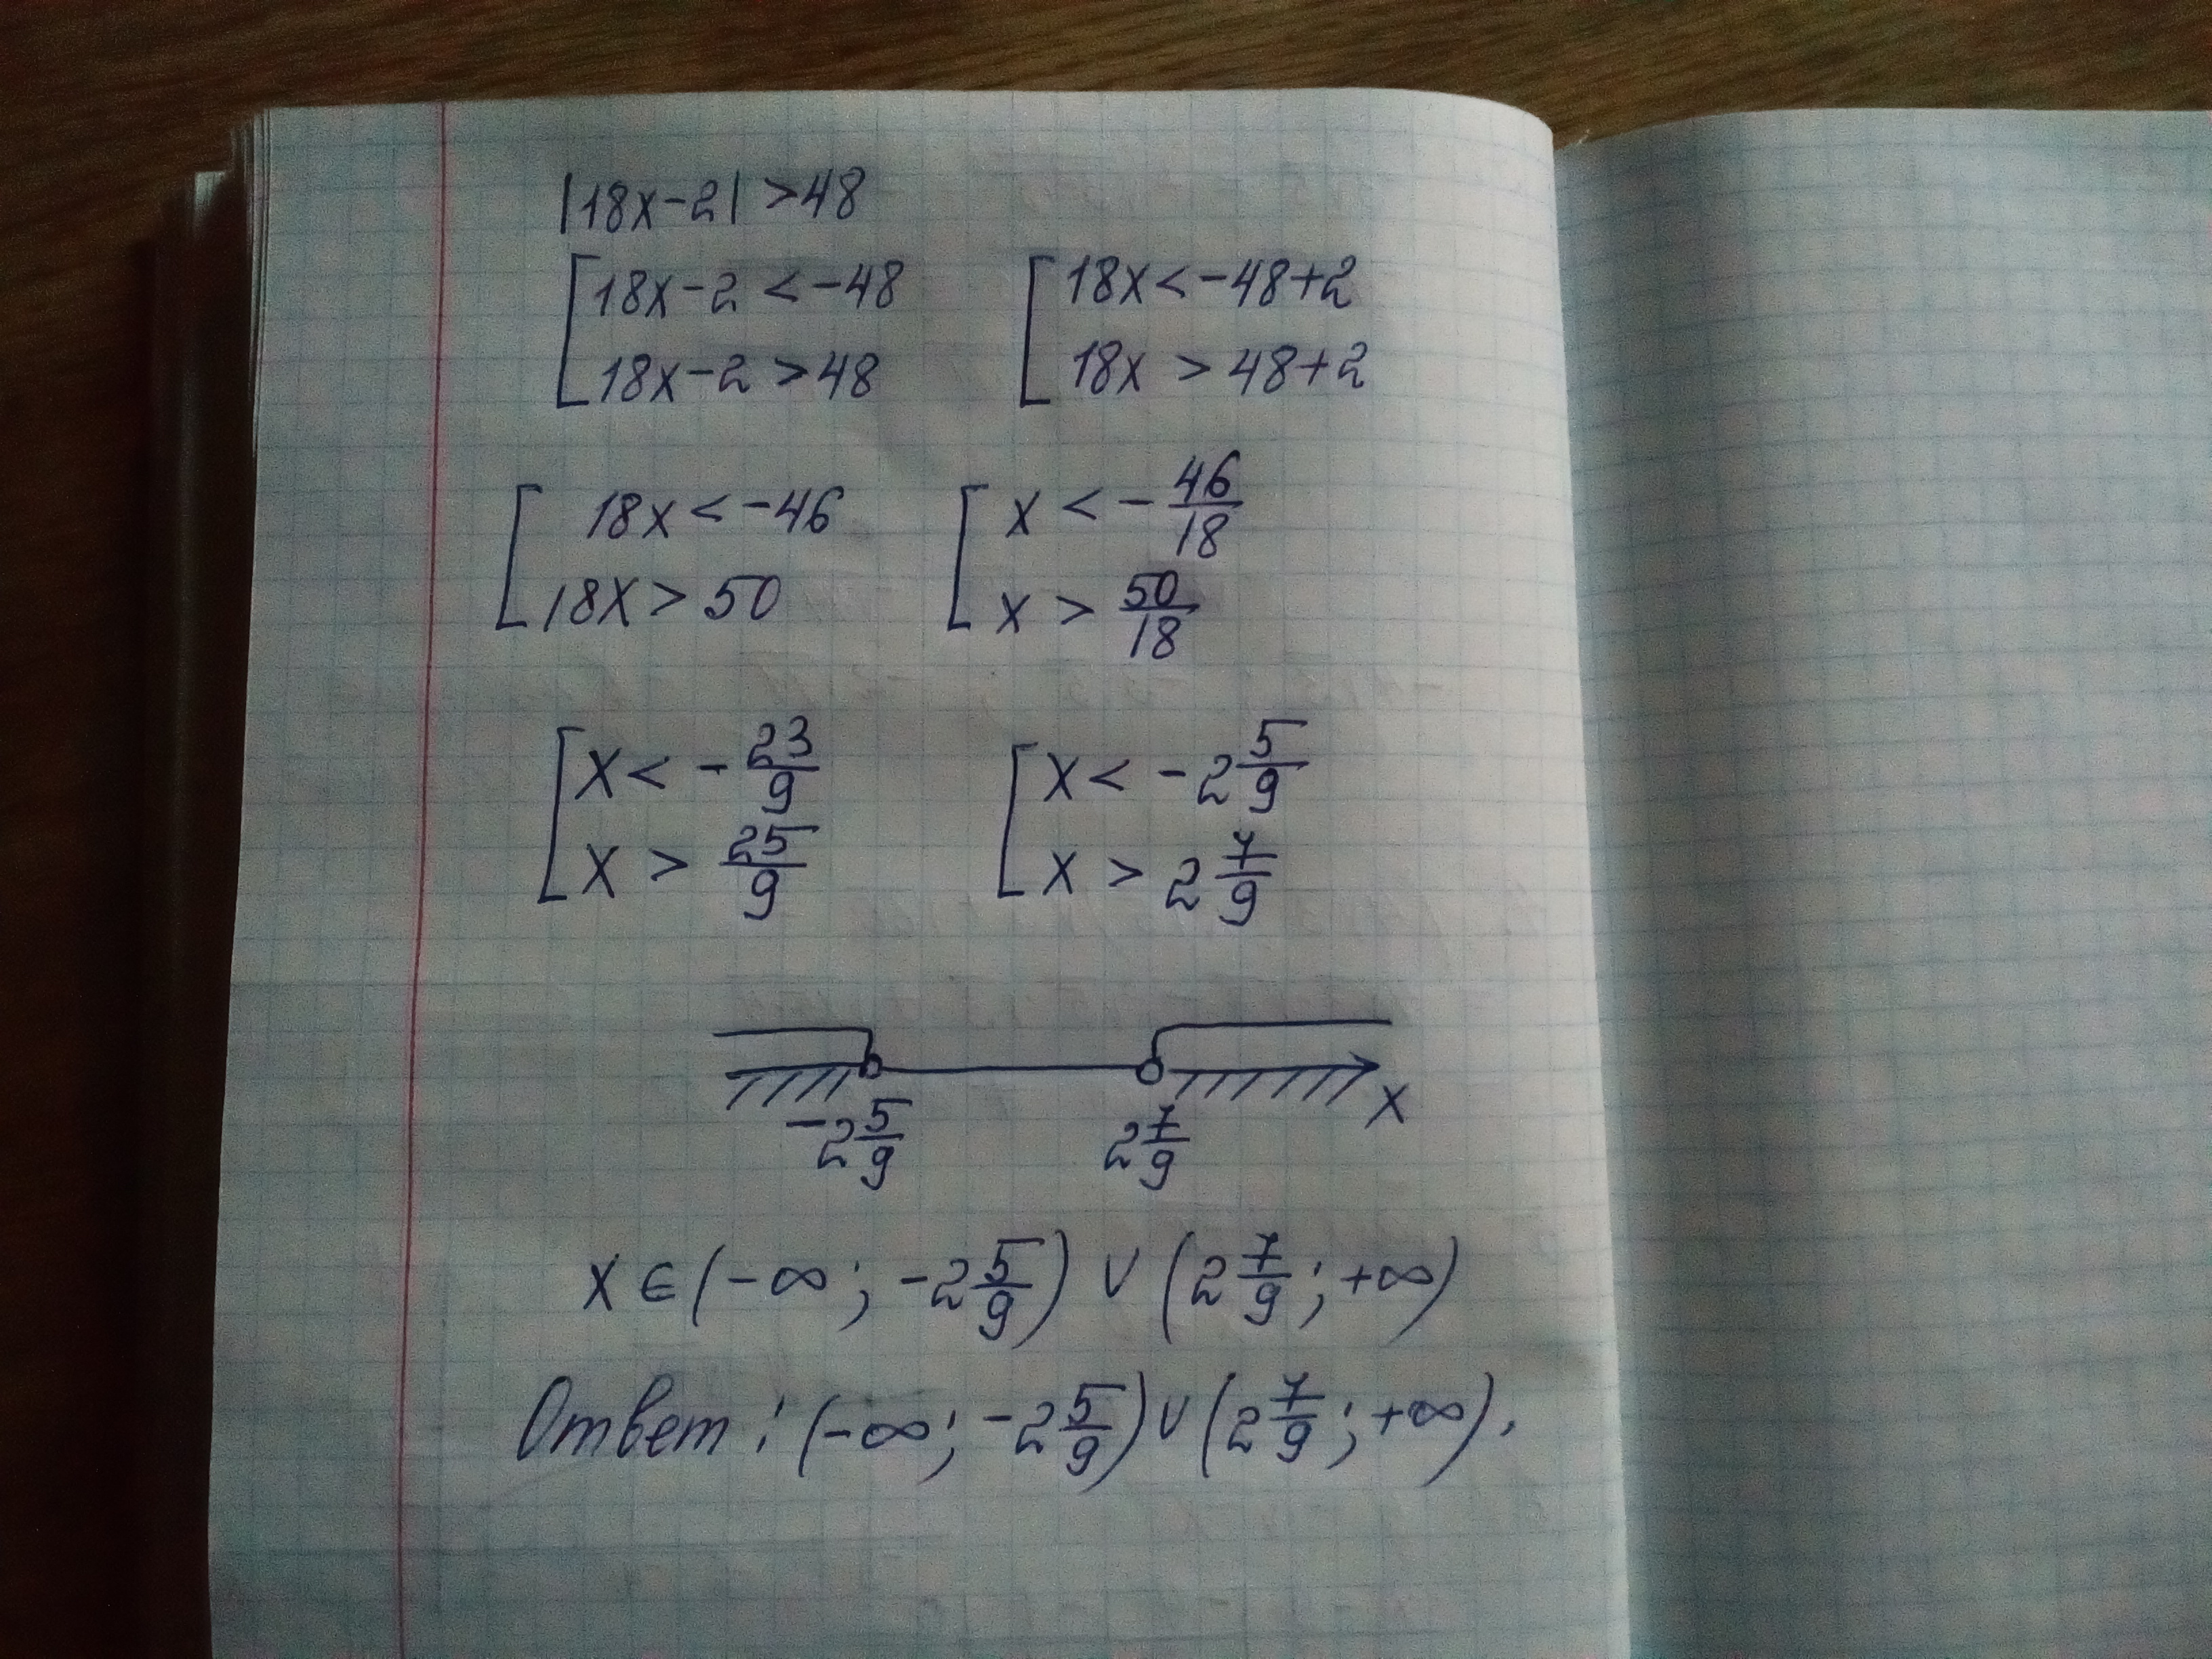 |18x-2| >48
[18x-2 < -48 [18x< -48+2
18x-2 >48 18x > 48+2
[18x < -46 [x < - 46/18
18x > 50 x > 50/18
[x < - 23/9 [x < -2 5/9
x > 25/9 x > 2 7/9
x
-2 5/9 2 7/9
x ∈ (-∞; -2 5/9) ∪ (2 7/9; +∞)
Ответ: (-∞; -2 5/9) ∪ (2 7/9; +∞).